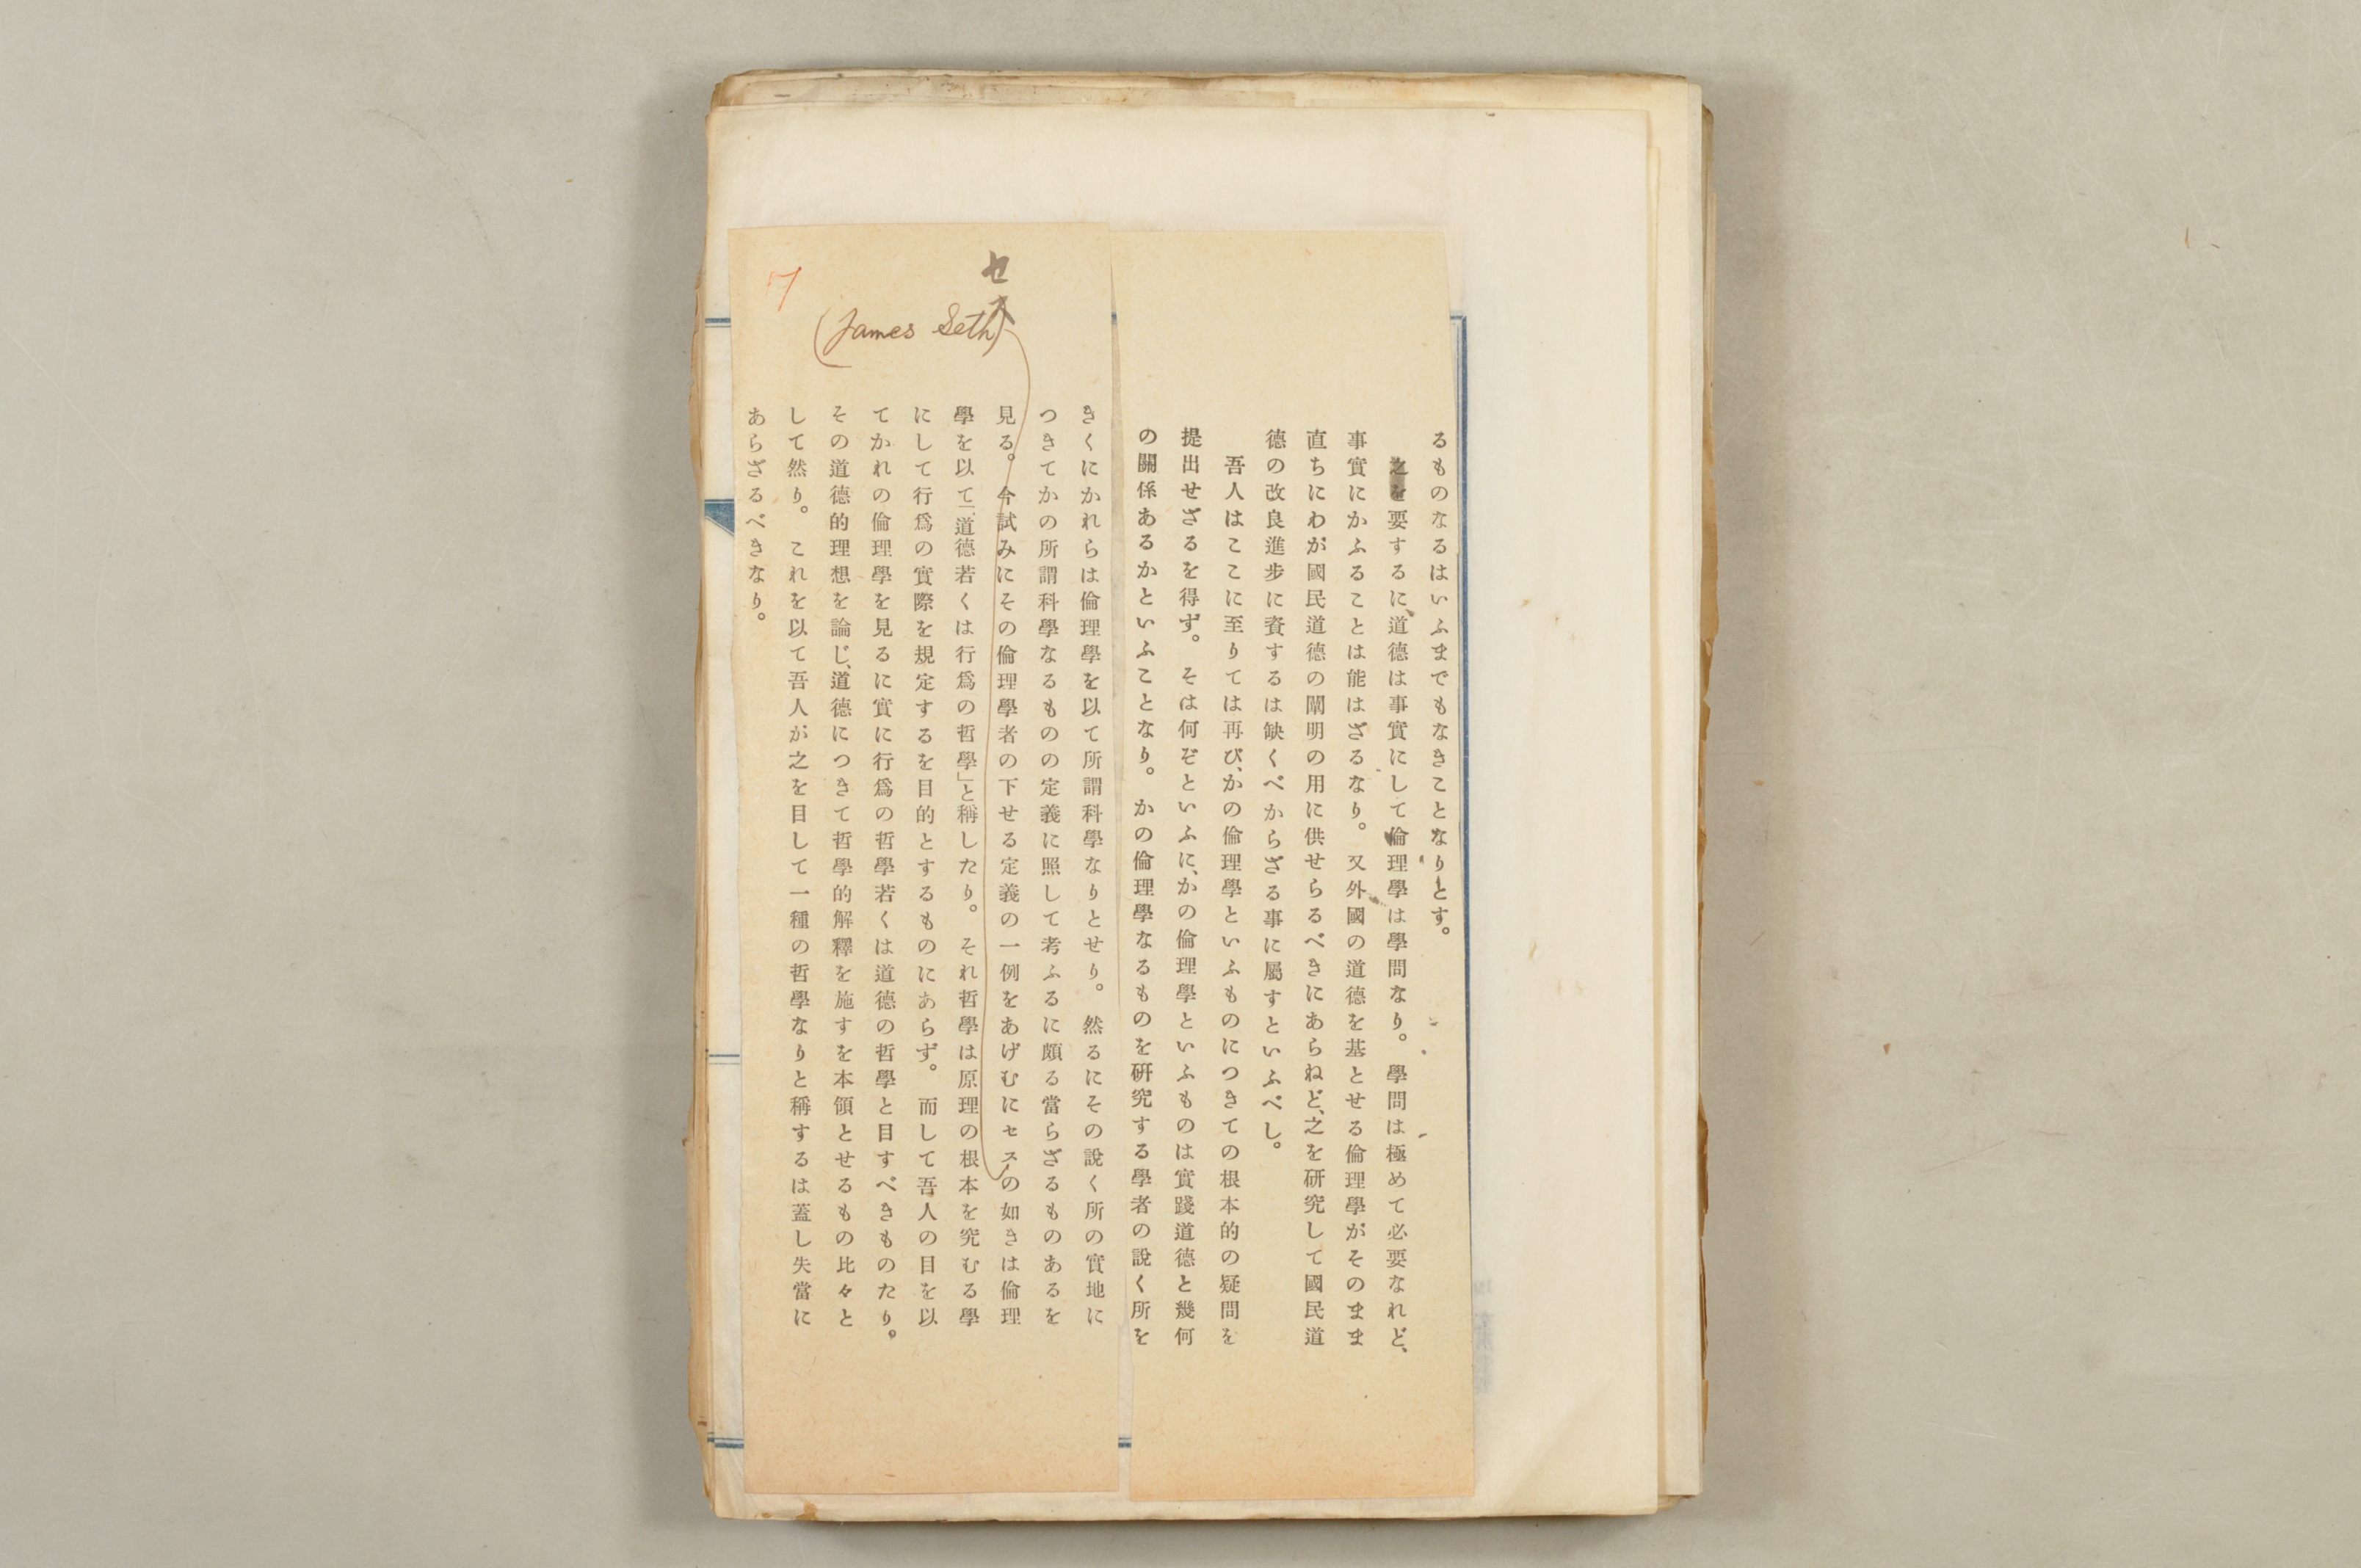 るものなるはいふまでもなきことなりとす。
之を要するに、道德は事實にして倫理學は學問なり。學問は極めて必要なれど、
事實にかふることは能はざるなり。又外國の道德を基とせる倫理學がそのまま
直ちにわが國民道德の闡明の用に供せらるべきにあらねど、之を研究して國民道
德の改良進步に資するは缺くべからざる事に屬すといふべし。
吾人はここに至りては再び、かの倫理學といふものにつきての根本的の疑問を
提出せざるを得ず。そは何ぞといふに、かの倫理學といふものは實踐道德と幾何
の關係あるかといふことなり。かの倫理學なるものを硏究する學者の說く所を
きくにかれらは倫理學を以て所謂科學なりとせり。然るにその說く所の實地に
つきてかの所謂科學なるものの定義に照して考ふるに頗る當らざるものあるを
見る。今試みにその倫理學者の下せる定義の一例をあげむにセスの如きは倫理
學を以て「道德若くは行爲の哲學」と稱したり。それ哲學は原理の根本を究むる學
にして行爲の實際を規定するを目的とするものにあらず。而して吾人の目を以
てかれの倫理學を見るに實に行爲の哲學若くは道德の哲學と目すべきものたり。
その道德的理想を論じ、道德につきて哲學的解釋を施すを本領とせるもの比々と
して然り。これを以て吾人が之を目して一種の哲學なりと稱するは蓋し失當に
あらざるべきなり。
セス
(James Seth)
17